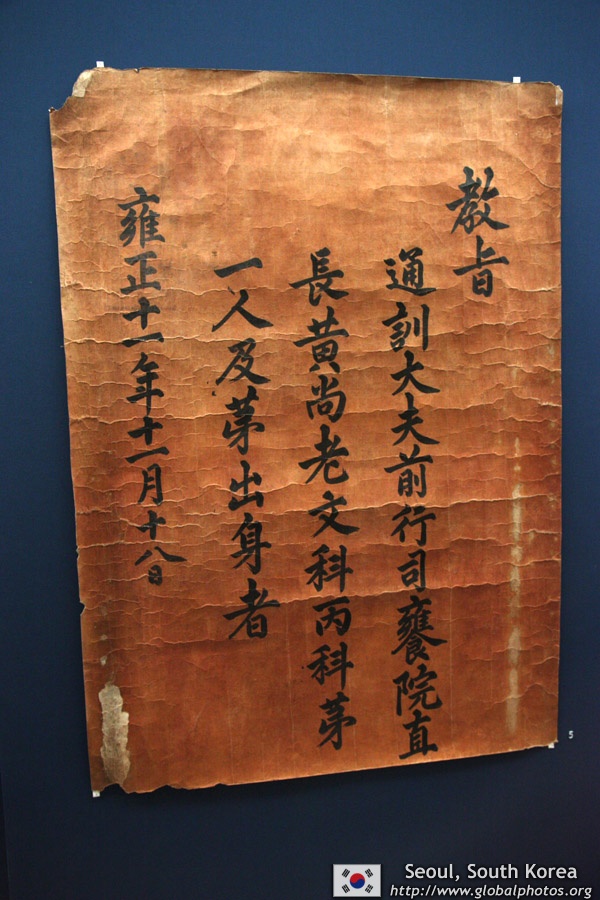 教旨
通訓大夫前行司饔院直
長黄尚老文科丙科苐
一人及苐出身者
雍正十一年十一月十八日
5
Seoul, South Korea
http://www.globalphotos.org